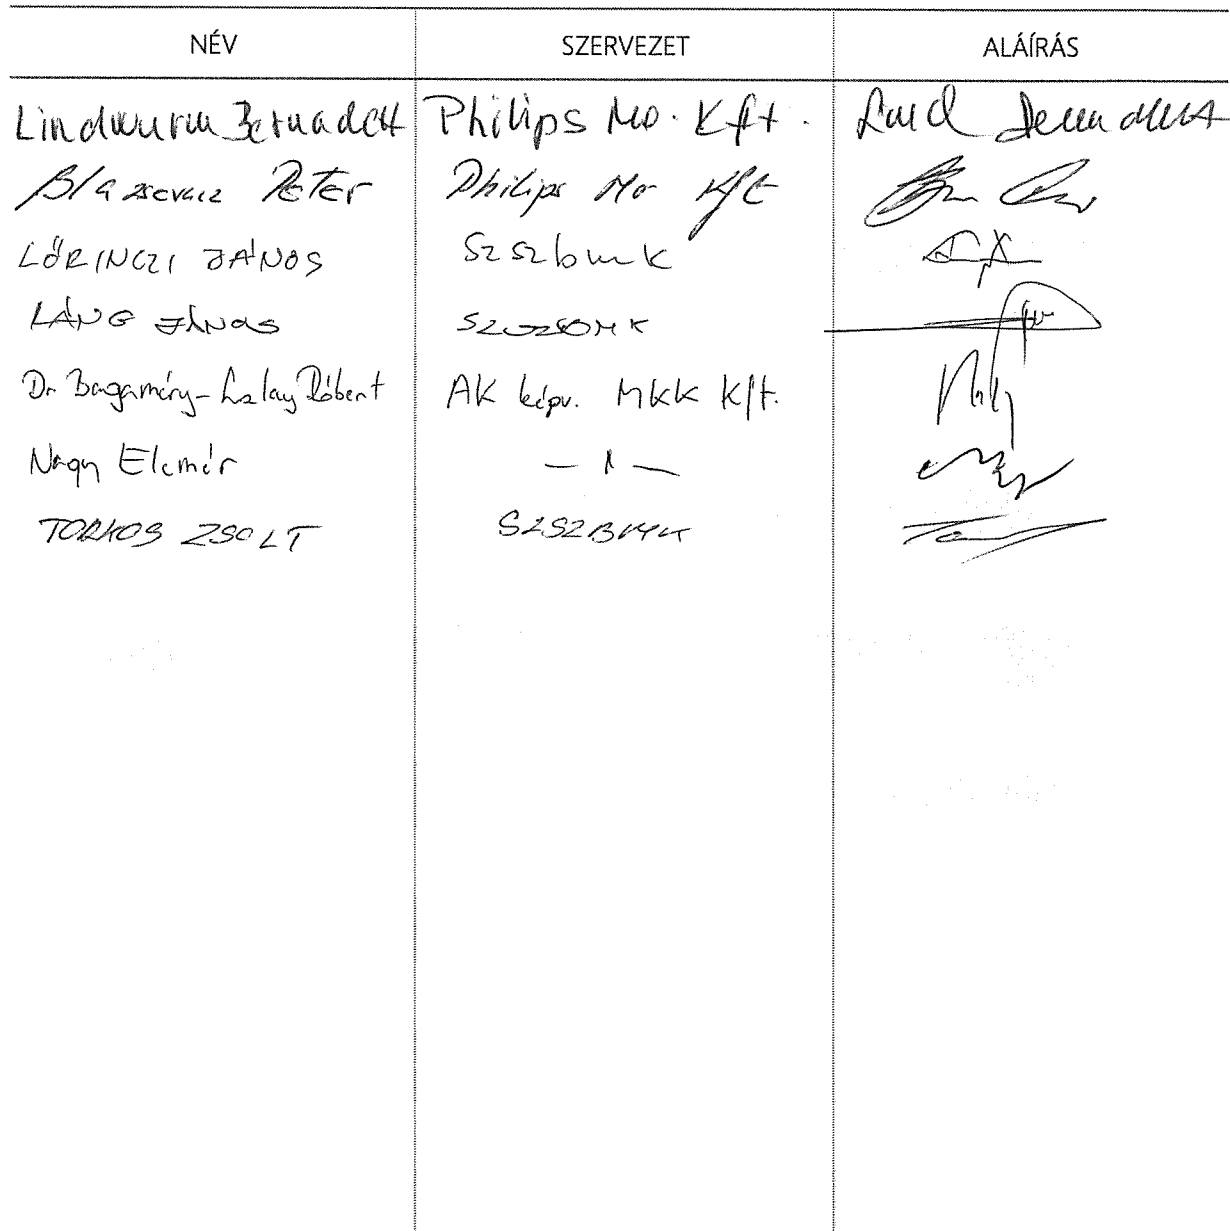 NÉV SZERVEZET ALÁÍRÁS
Lindwurm Bernadett Philips Mo. Kft.
Péter Philips Mo Kft
LŐRINCZI JÁNOS SZSZbmK
LÁNG JÁNOS
Dr. Bagaméry-Szalay Róbert AK képv. MKK Kft.
Nagy Elemér — 1 —
TORKOS ZSOLT SZSZBMK